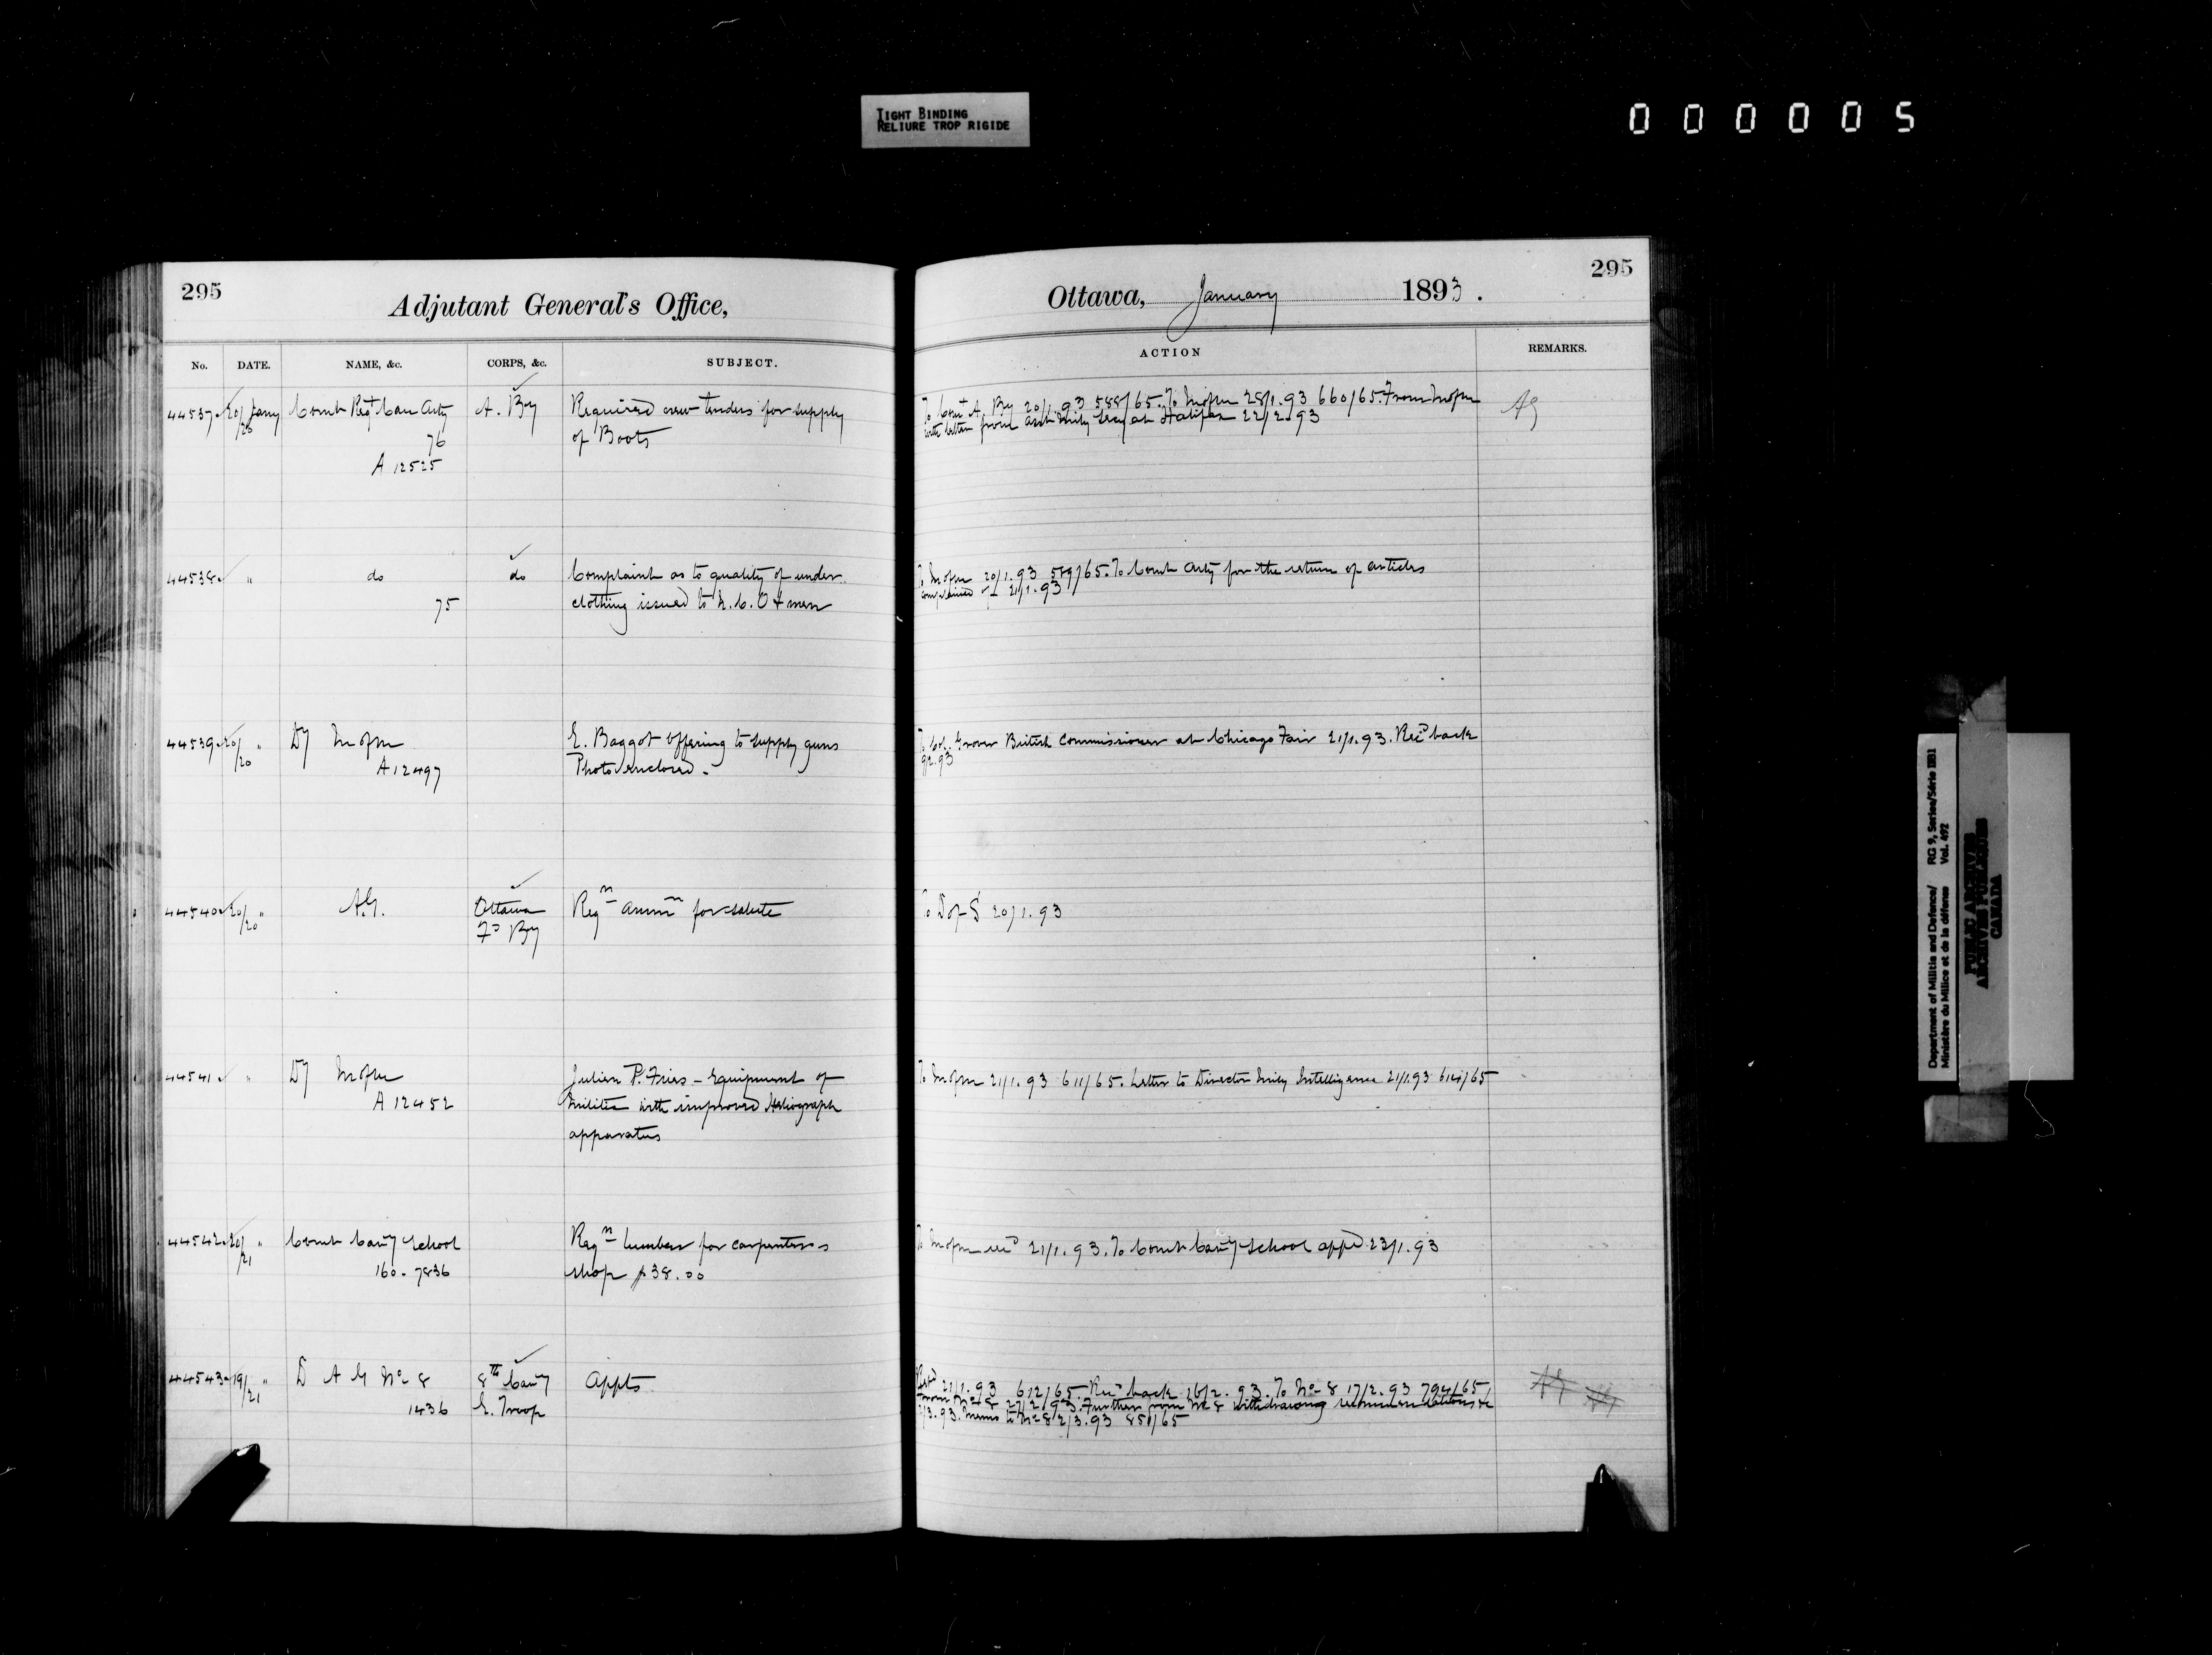 TIGHT BINDING
RELIURE TROP RIGIDE
000005
295
Adjutant General's Office,
Ottawa, January 1893.
295
No. DATE. NAME, &c. CORPS, &c. SUBJECT. ACTION REMARKS.
44537 20/20 Jany Comdt Regt Can Arty A. By Required new tenders for supply
of Boots
76
A 12525
To Comt A. By 20/1.93 588/65. To M of M 28/1.93 660/65. From M of M
with letter from Asst Mily Secy at Halifax 22/2.93
AG
44538 " do do Complaint as to quality of under
75 clothing issued to N.C.O & men
To M of M 20/1.93 589/65. To Comdt Arty for the return of articles
complained of 21/1.93
44539 20/20 " Dy M of M E. Baggot offering to supply guns
A 12497 Photo enclosed.
To Col. Grover British Commissioner at Chicago Fair 21/1.93. Recd back
44540 20/20 " A.G. Ottawa Reqn Ammn for salute
Fd By
To D of S 20/1.93
44541 " Dy M of M Julien P. Fries - Equipment of
A 12452 Militia with improved Heliograph
apparatus
To M of M 21/1.93 611/65. Letter to Director Mily Intelligence 21/1.93 614/65
44542 20/21 " Comdt Cavy School Reqn lumber for carpenters
160. 7836 shop $38.00
To M of M 21/1.93. To Comdt Cavy School appd. 23/1.93
44543 19/21 " D A G No 8 8th Cavy Appts
1436 E. Troop
21/1.93 612/65. Recd back 16/2.93. To No 8 17/2.93 794/65
From No 8 27/2/93. Further from No 8 withdrawing recommendations &c
Memo to No 8 2/3.93 851/65
AG AG
Department of Militia and Defence/
Ministère du Milice et de la défense
RG 9, Series/Série IIB1
Vol. 492
PUBLIC ARCHIVES
ARCHIVES PUBLIQUES
CANADA